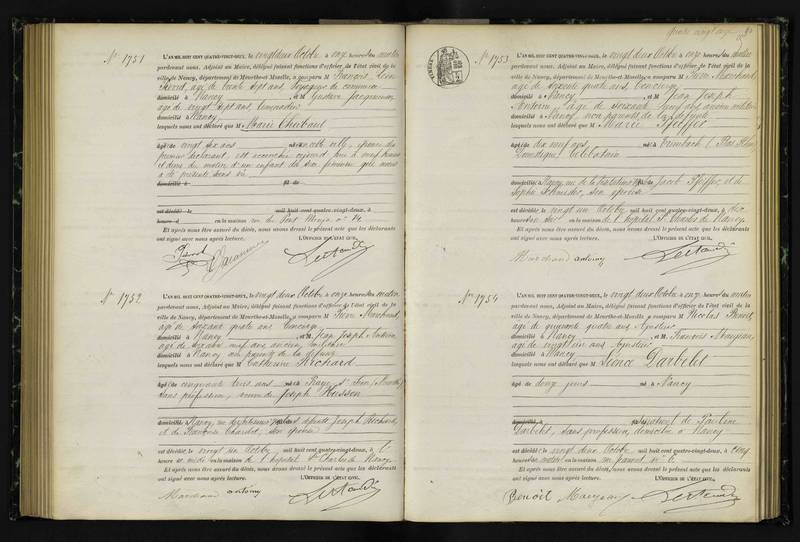 quatre vingt onze
N° 1751
L'AN MIL HUIT CENT QUATRE-VINGT-DEUX, le vingt deux Octobre à onze heures du matin
pardevant nous, Adjoint au Maire, délégué faisant fonctions d'officier de l'état civil de la
ville de Nancy, département de Meurthe-et-Moselle, a comparu M François Léon
Pierrot, âgé de trente sept ans voyageur de commerce
domicilié à Nancy, et M Gustave Jacquemin
âgé de vingt sept ans,
domicilié à Nancy
lesquels nous ont déclaré que M Marie Thiébaut
âgé de vingt six ans née en cette ville, épouse du
premier déclarant, est accouchée aujourd'hui à neuf heures
du matin d'un enfant du sexe féminin qui nous
a été présenté sans vie
domicilié à fil de
est décédé le mil huit cent quatre-vingt-deux, à
heure d en sa maison rue du Pont Mouja n° 14
Et après nous être assuré du décès, nous avons dressé le présent acte que les déclarants
ont signé avec nous après lecture. L'OFFICIER DE L'ÉTAT CIVIL,
Pierrot
Jacquemin
N° 1752
L'AN MIL HUIT CENT QUATRE-VINGT-DEUX, le vingt deux Octobre à onze heures du matin
pardevant nous, Adjoint au Maire, délégué faisant fonctions d'officier de l'état civil de la
ville de Nancy, département de Meurthe-et-Moselle, a comparu M Pierre Marchand,
âgé de soixante quatre ans Concierge
domicilié à Nancy, et M Jean Joseph Antoine
âgé de soixante neuf ans ancien militaire
domicilié à Nancy non parents de la défunte
lesquels nous ont déclaré que M Catherine Richard
âgée de cinquante trois ans née à
sans profession, veuve de Joseph Husson
domiciliée à Nancy, fille des défunts Joseph Richard,
et de Françoise Chardot, son épouse
est décédée le vingt un Octobre mil huit cent quatre-vingt-deux, à
heure en la maison de l'hôpital St Charles de Nancy
Et après nous être assuré du décès, nous avons dressé le présent acte que les déclarants
ont signé avec nous après lecture. L'OFFICIER DE L'ÉTAT CIVIL,
Marchand antoine
N° 1753
L'AN MIL HUIT CENT QUATRE-VINGT-DEUX, le vingt deux Octobre à onze heures du matin
pardevant nous, Adjoint au Maire, délégué faisant fonctions d'officier de l'état civil de la
ville de Nancy, département de Meurthe-et-Moselle, a comparu M Pierre Marchand
âgé de soixante quatre ans, Concierge
domicilié à Nancy, et M Jean Joseph
Antoine, âgé de soixante neuf ans ancien militaire
domicilié à Nancy, non parents de la défunte
lesquels nous ont déclaré que M Marie Pfeiffer
âgée de dix neuf ans née à Trimbach (Bas Rhin)
Domestique Célibataire
domiciliée à Nancy, fille de Jacob Pfeiffer, et de
Sophie Schneider, son épouse
est décédée le vingt un Octobre mil huit cent quatre-vingt-deux, à
heure du soir en la maison de l'hôpital St Charles de Nancy
Et après nous être assuré du décès, nous avons dressé le présent acte que les déclarants
ont signé avec nous après lecture. L'OFFICIER DE L'ÉTAT CIVIL,
Marchand antoine
N° 1754
L'AN MIL HUIT CENT QUATRE-VINGT-DEUX, le vingt deux Octobre à onze heures du matin
pardevant nous, Adjoint au Maire, délégué faisant fonctions d'officier de l'état civil de la
ville de Nancy, département de Meurthe-et-Moselle, a comparu M Nicolas Benoît,
âgé de quarante quatre ans
domicilié à Nancy, et M François Maujean,
âgé de vingt six ans
domicilié à Nancy
lesquels nous ont déclaré que M Léonce Darbelet
âgé de douze jours né à Nancy
domicilié à fils naturel de Pauline
Darbelet, sans profession, domiciliée à Nancy
est décédé le vingt deux Octobre mil huit cent quatre-vingt-deux, à cinq
heures du matin en la maison n° 6
Et après nous être assuré du décès, nous avons dressé le présent acte que les déclarants
ont signé avec nous après lecture. L'OFFICIER DE L'ÉTAT CIVIL,
Benoit Maujean